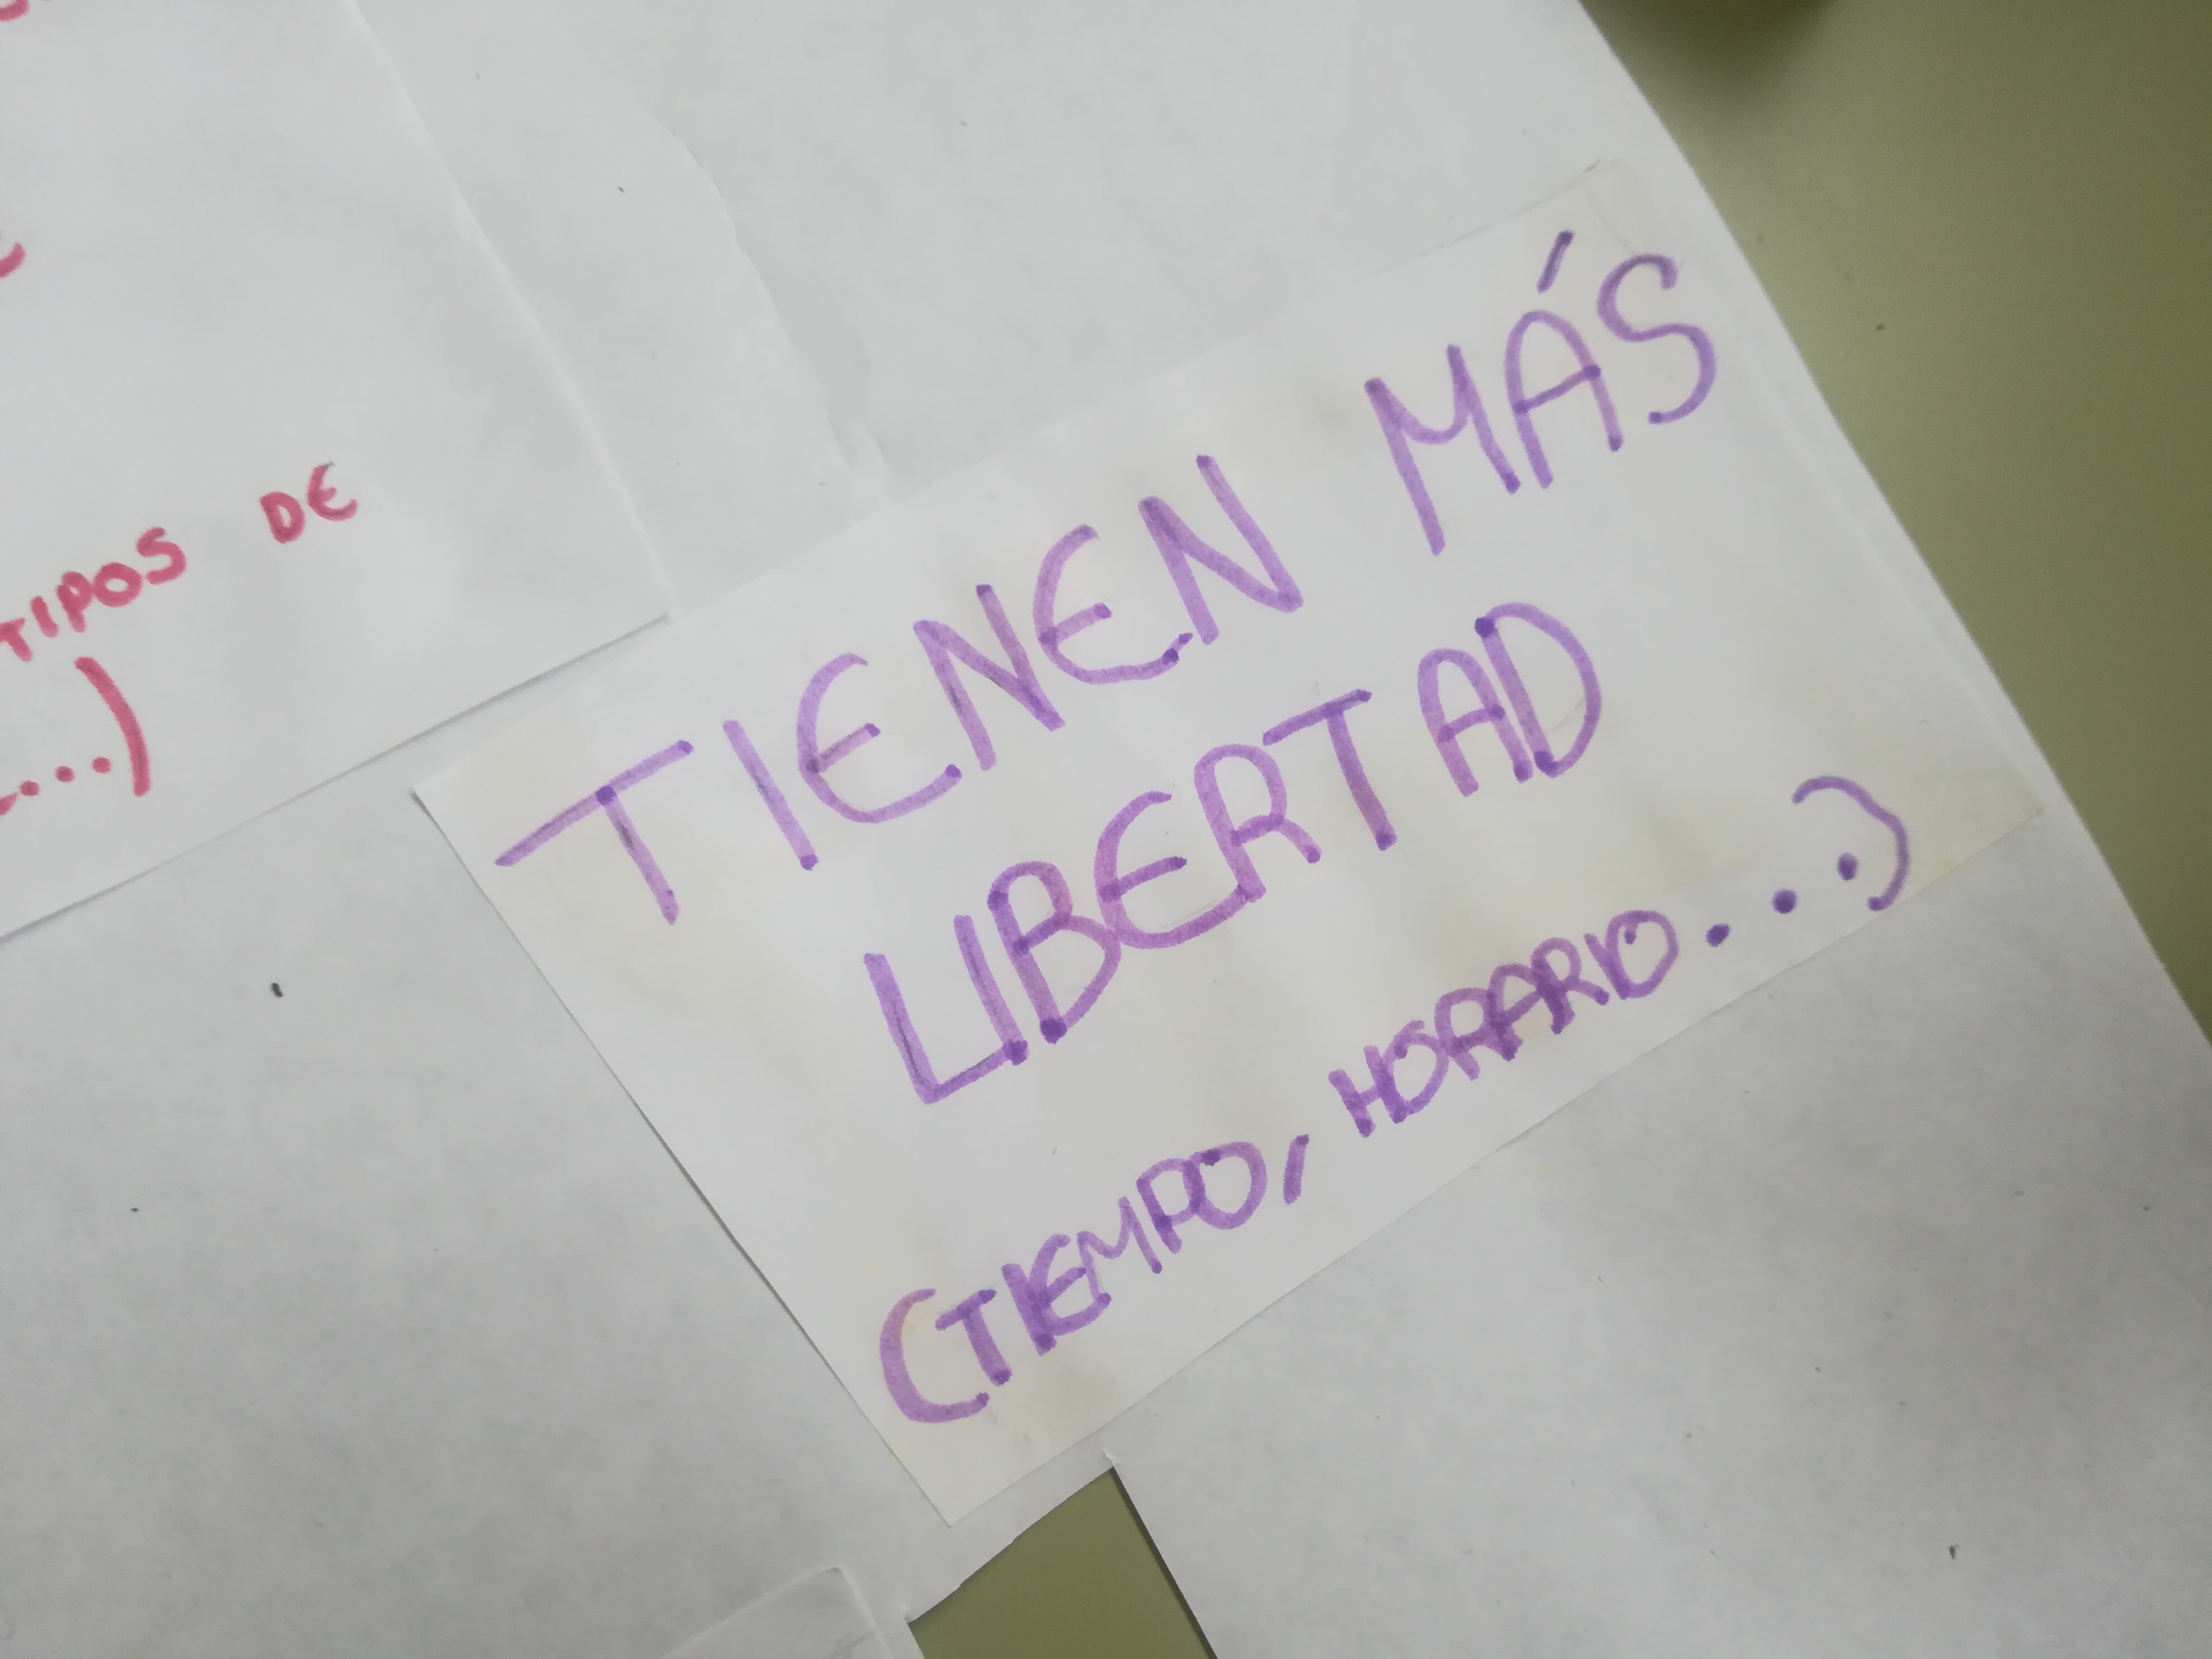 TIPOS DE
...)
TIENEN MÁS
LIBERTAD
(TIEMPO, HORARIO...)